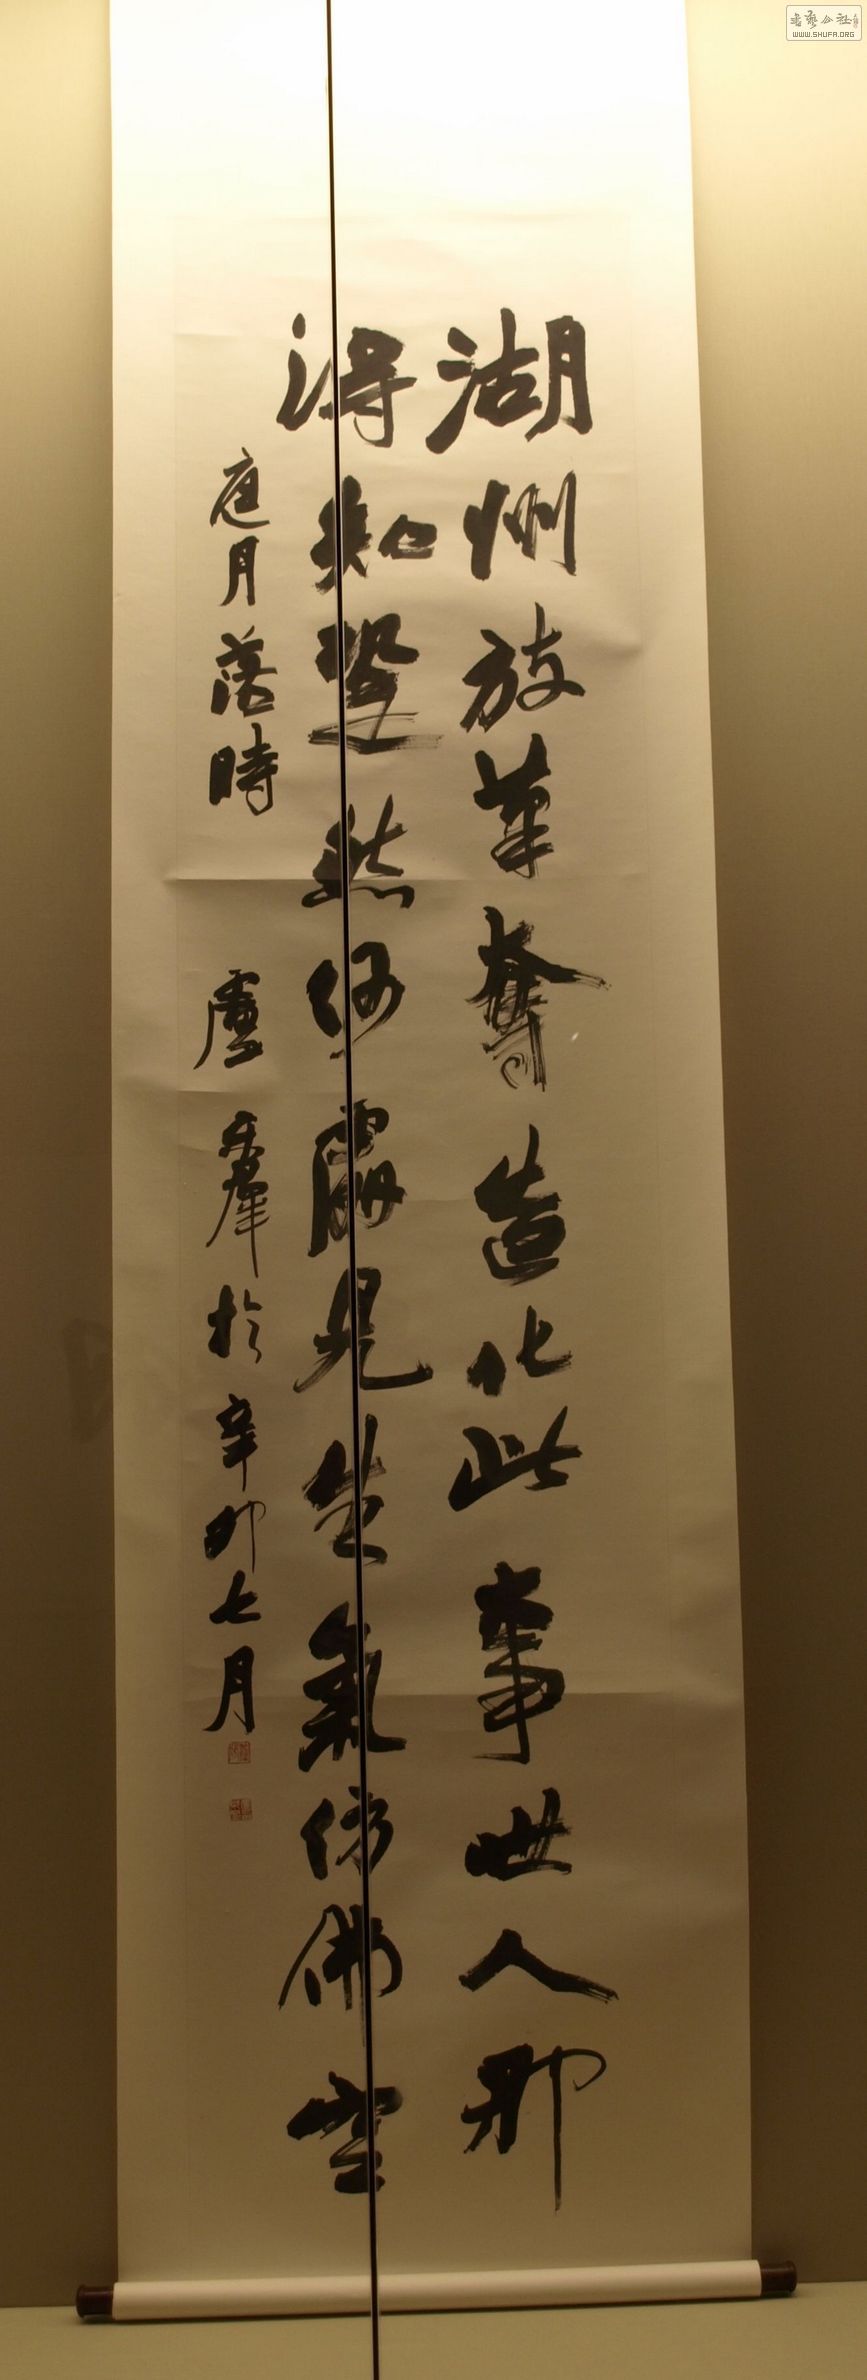 湖州放筆奪造化此事世人那
得知跫然何處見生氣仿佛空
庭月落時 盧乐群於辛卯七月
書藝公社
WWW.SHUFA.ORG